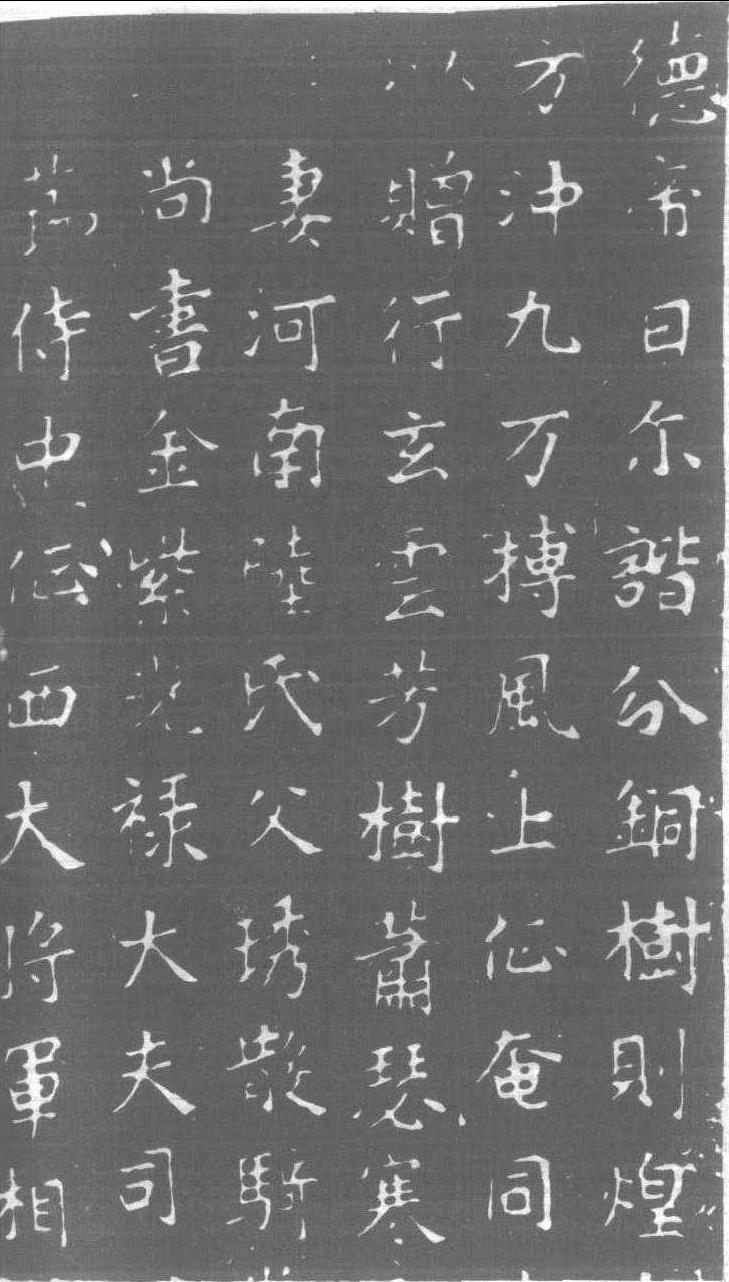 德帝曰尔諧分銅樹則煌
方沖九万搏風上征奄同
以贈行玄雲芳樹蕭瑟寒
妻河南陸氏父琇散騎
尚書金紫光禄大夫司
侍中征西大将軍相